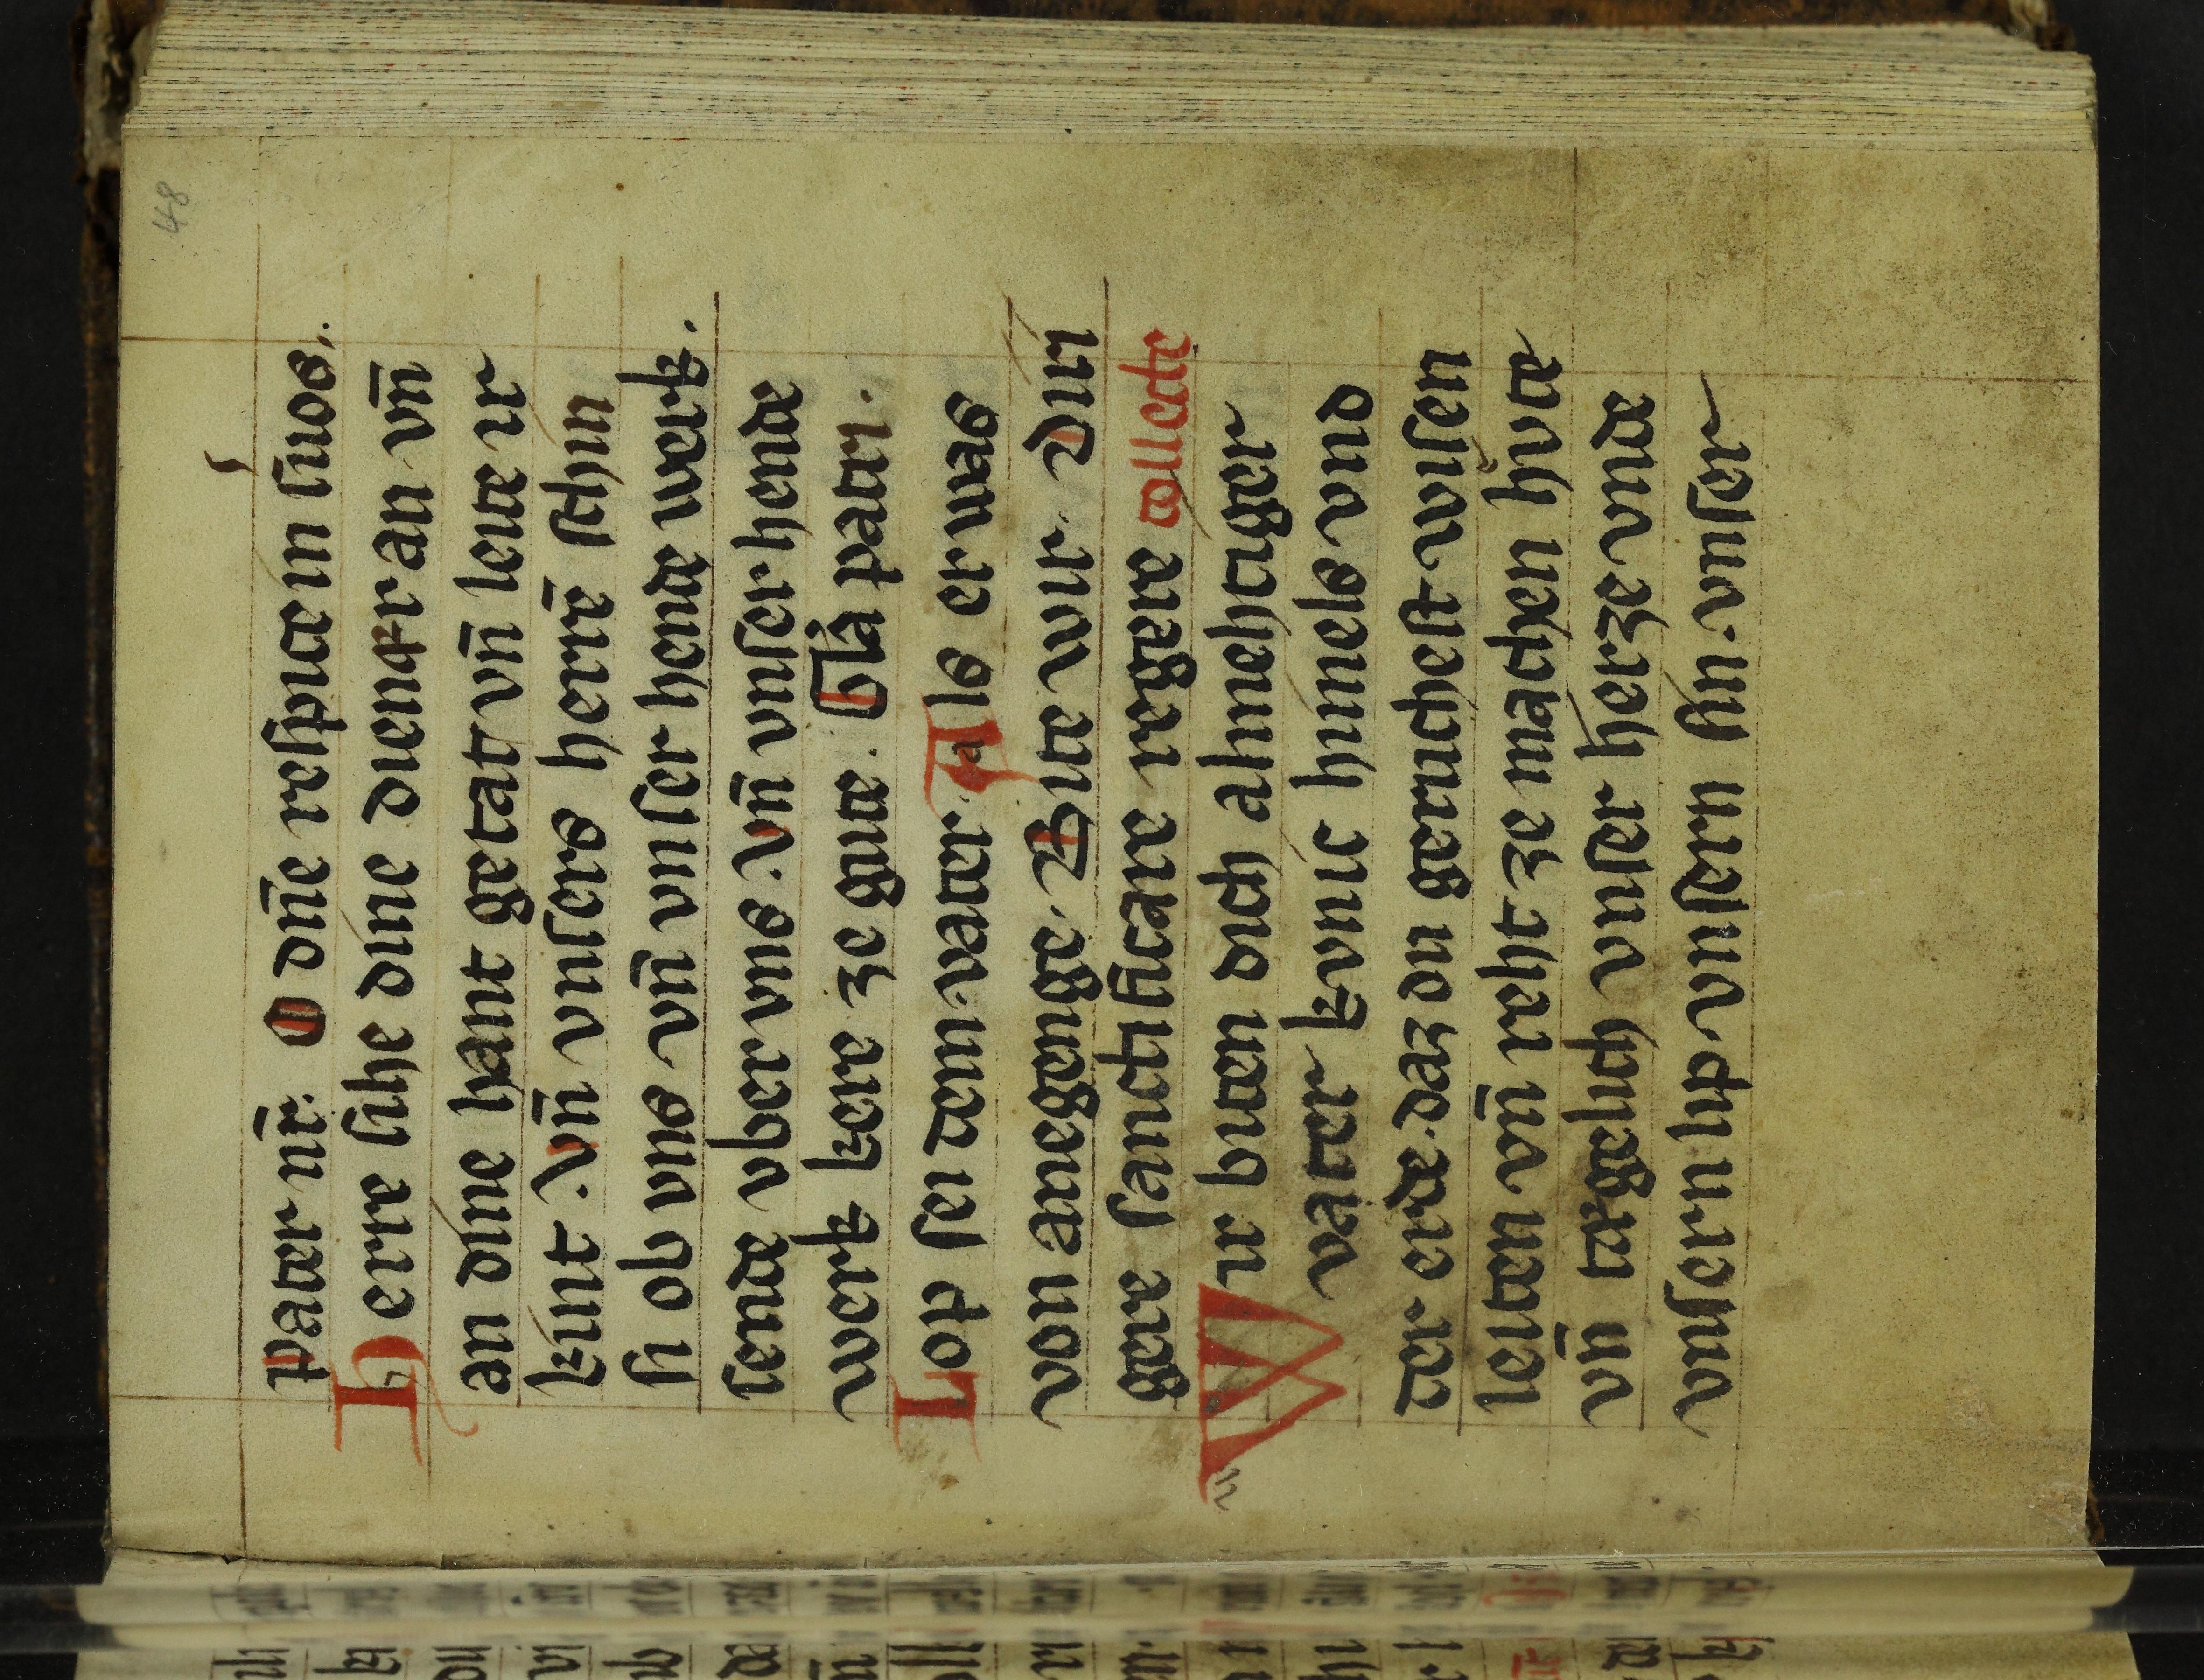 48
pater nr̄. O dn̄e respice in suos.
Herre sihe dine diener an vn̄
an dine hant getat vn̄ leite ir
kint. Vn̄ vnsers herrē schin
si ob vns vn̄ vnser hende werk.
sende vber vns. Vn̄ vnser hende
werk kere ze gute. Gl̄a patri.
Lop sei dem vater. Als er was
von anegenge. Bite wir. Diri
gere sanctificare regere collecte
Wir biten dich almehtiger
vater kvnic himels vnd
der erde. daz du geruchest wisen
leiten vn̄ reht ze machen hv̆te
vn̄ tægelich vnser herze vnde
vnsern lip. vnsern sin. vnser